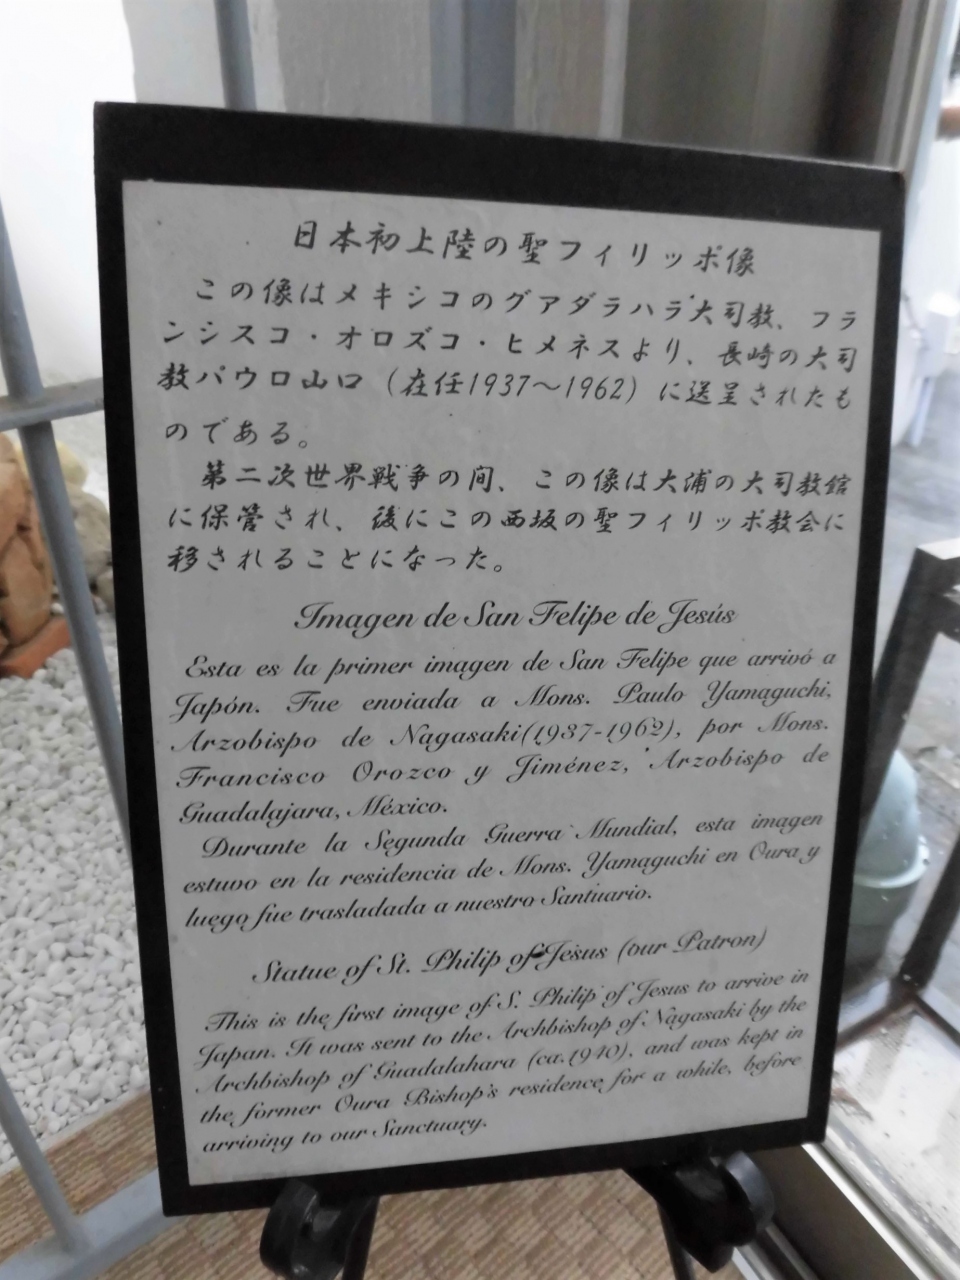 日本初上陸の聖フィリッポ像
この像はメキシコのグアダラハラ大司教、フラ
ンシスコ・オロズコ・ヒメネスより、長崎の大司
教パウロ山口（在任1937〜1962）に送呈されたも
のである。
第二次世界戦争の間、この像は大浦の大司教館
に保管され、後にこの西坂の聖フィリッポ教会に
移されることになった。
Imagen de San Felipe de Jesús
Esta es la primer imagen de San Felipe que arrivó a
Japón. Fue enviada a Mons. Paulo Yamaguchi,
Arzobispo de Nagasaki(1937-1962), por Mons.
Francisco Orozco y Jiménez, Arzobispo de
Guadalajara, México.
Durante la Segunda Guerra Mundial, esta imagen
estuvo en la residencia de Mons. Yamaguchi en Oura y
luego fue trasladada a nuestro Santuario.
Statue of St. Philip of Jesus (our Patron)
This is the first image of S. Philip of Jesus to arrive in
Japan. It was sent to the Archbishop of Nagasaki by the
Archbishop of Guadalahara (ca.1940), and was kept in
the former Oura Bishop's residence for a while, before
arriving to our Sanctuary.